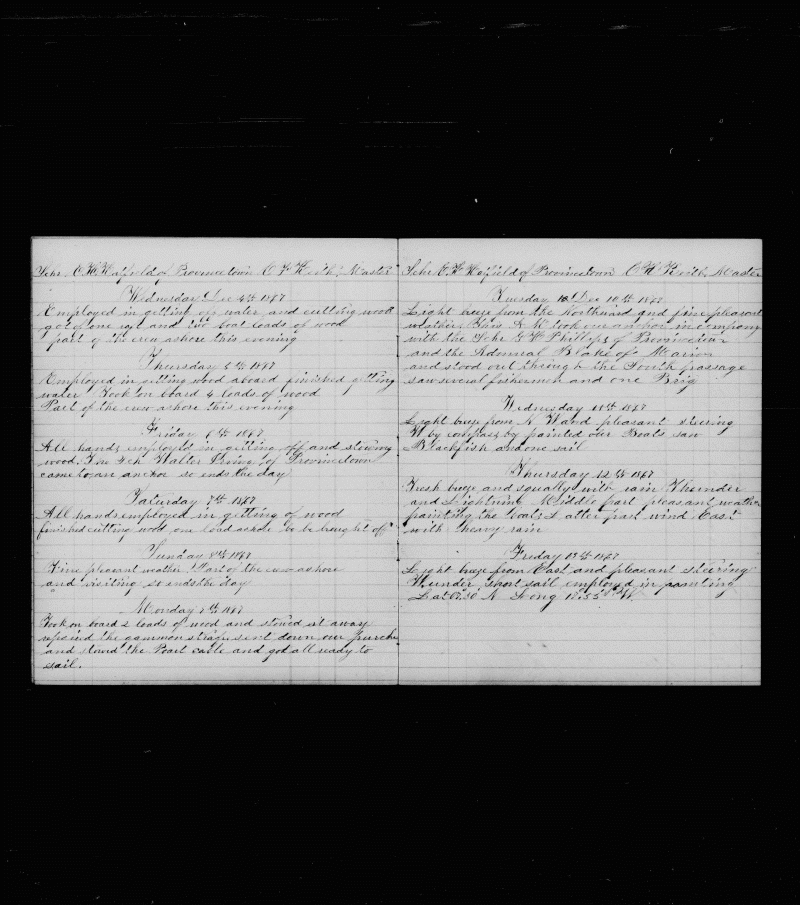 Schr E H Hatfield of Provincetown C H Keith Master
Wednesday Dec 4th 1867
Employed in getting our water and cutting wood
got of one raft and two boat loads of wood
part of the crew ashore this evening
Thursday 5th 1867
Employed in getting wood aboard finished getting
water Took on board 4 loads of wood
Part of the crew ashore this evening
Friday 6th 1867
All hands employed in getting off and stowing
wood. The Sch Walter Irving of Provincetown
came to an anchor so ends the day
Saturday 7th 1867
All hands employed in getting of wood
finished cutting wood one load ashore to be brought off
Sunday 8th 1867
Fine pleasant weather Part of the crew ashore
and visiting so ends the day
Monday 9th 1867
Took on board 2 loads of wood and stowed it away
repaired the gammon strap sent down our
and stowed the Boat and got all ready to
sail.
Schr E H Hatfield of Provincetown C H Keith Master
Tuesday Dec 10th 1867
Light breeze from the Northward and fine pleasant
weather this A M took our anchor in company
with the Schr G W Phillips of Provincetown
and the Admiral Blake of Marion
and stood out through the South passage
saw several fishermen and one Brig
Wednesday 11th 1867
Light breeze from N Ward pleasant steering
W by compass painted our Boats saw
Blackfish and one sail
Thursday 12th 1867
Fresh breeze and squally with rain Thunder
and Lightning Middle part pleasant weather
painting the boats latter part wind East
with heavy rain
Friday 13th 1867
Light breeze from East and pleasant steering
W under short sail employed in painting
Lat N Long W